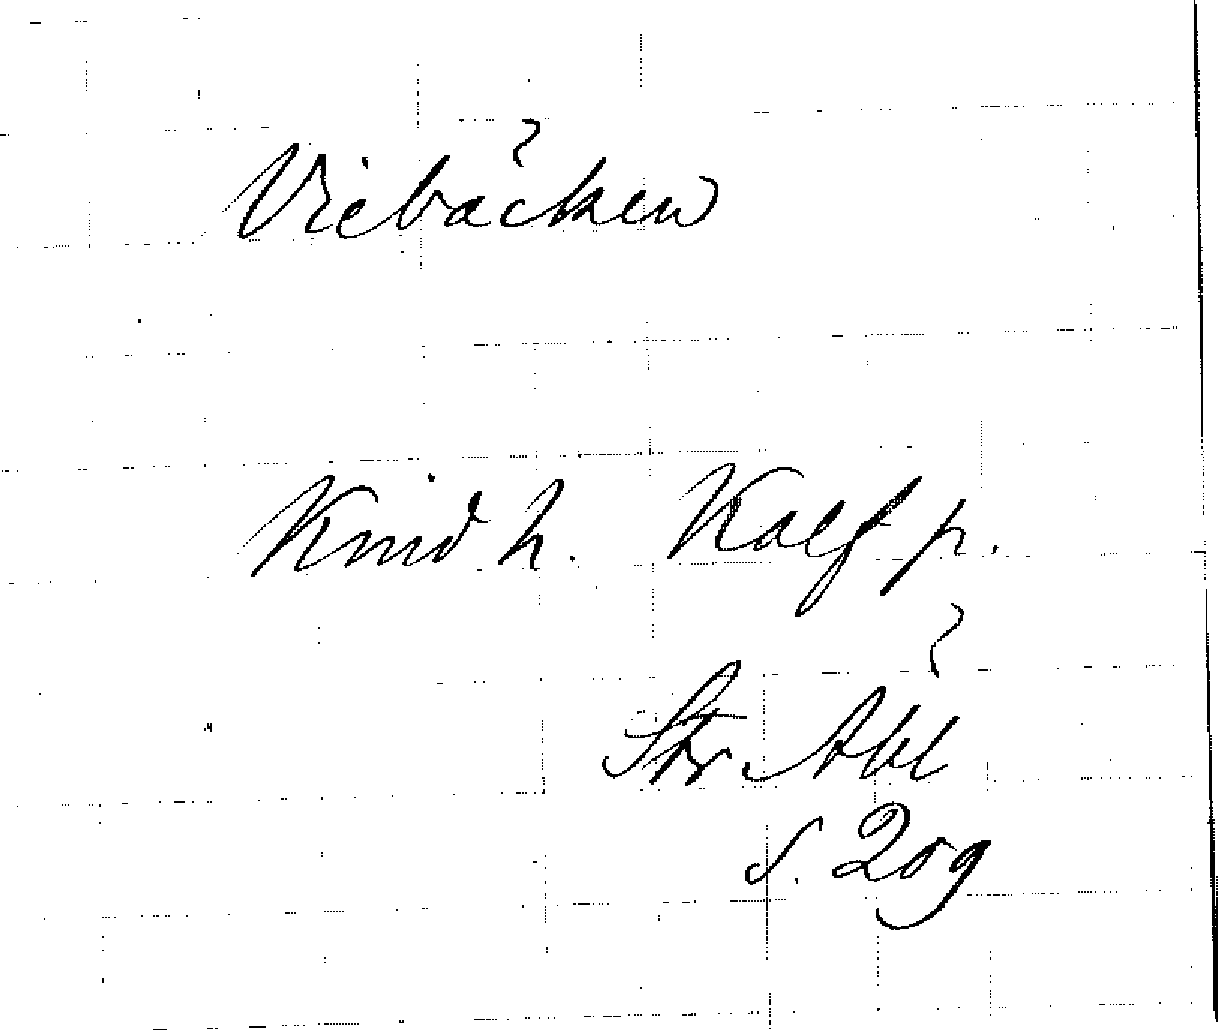 Viebacken
Kind h. Kalf p.
Str. Abl
s. 209